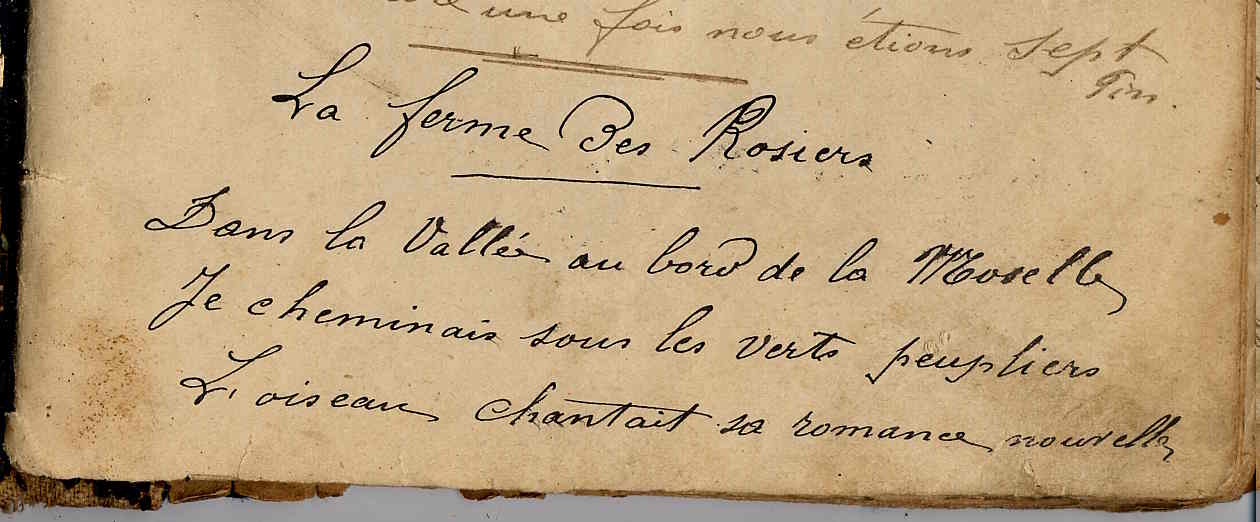 une fois nous étions sept
Fin.
La ferme des Rosiers
Dans la Vallée au bord de la Moselle
Je cheminais sous les verts peupliers
L'oiseau chantait sa romance nouvelle